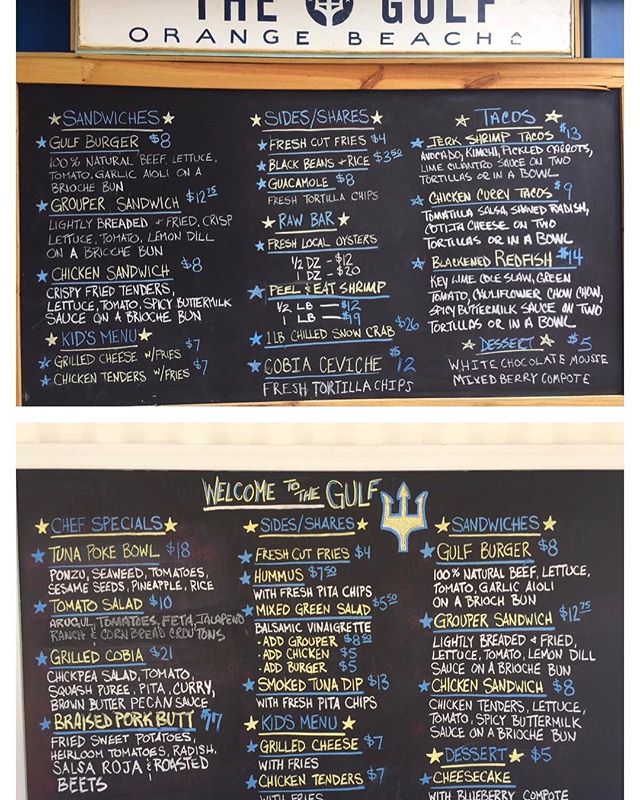 THE GULF
ORANGE BEACH AL
SANDWICHES
GULF BURGER $8
100% NATURAL BEEF, LETTUCE,
TOMATO, GARLIC AIOLI ON A
BRIOCHE BUN
GROUPER SANDWICH $12.75
LIGHTLY BREADED + FRIED, CRISP
LETTUCE, TOMATO, LEMON DILL
ON A BRIOCHE BUN
CHICKEN SANDWICH $8
CRISPY FRIED TENDERS,
LETTUCE, TOMATO, SPICY BUTTERMILK
SAUCE ON A BRIOCHE BUN
KID'S MENU
GRILLED CHEESE W/FRIES $7
CHICKEN TENDERS W/FRIES $7
SIDES/SHARES
FRESH CUT FRIES $4
BLACK BEANS + RICE $3.50
GUACAMOLE $8
FRESH TORTILLA CHIPS
RAW BAR
FRESH LOCAL OYSTERS
1/2 DZ - $12
1 DZ - $20
PEEL & EAT SHRIMP
1/2 LB - $12
1 LB - $19
1LB CHILLED SNOW CRAB $26
COBIA CEVICHE $12
FRESH TORTILLA CHIPS
TACOS
JERK SHRIMP TACOS $13
AVOCADO, KIMCHI, PICKLED CARROTS,
LIME CILANTRO SAUCE ON TWO
TORTILLAS OR IN A BOWL
CHICKEN CURRY TACOS $9
TOMATILLA SALSA, SHAVED RADISH,
COTIJA CHEESE ON TWO
TORTILLAS OR IN A BOWL
BLACKENED REDFISH $14
KEY LIME COLE SLAW, GREEN
TOMATO, CAULIFLOWER CHOW CHOW,
SPICY BUTTERMILK SAUCE ON TWO
TORTILLAS OR IN A BOWL
DESSERT $5
WHITE CHOCOLATE MOUSSE
MIXED BERRY COMPOTE
WELCOME TO THE GULF
CHEF SPECIALS
TUNA POKE BOWL $18
PONZU, SEAWEED, TOMATOES,
SESAME SEEDS, PINEAPPLE, RICE
TOMATO SALAD $10
ARUGUL, TOMATOES, FETA, JALAPENO
RANCH & CORN BREAD CROUTONS
GRILLED COBIA $21
CHICKPEA SALAD, TOMATO,
SQUASH PUREE, PITA, CURRY,
BROWN BUTTER PECAN SAUCE
BRAISED PORK BUTT $17
FRIED SWEET POTATOES,
HEIRLOOM TOMATOES, RADISH,
SALSA ROJA & ROASTED
BEETS
SIDES/SHARES
FRESH CUT FRIES $4
HUMMUS $7.50
WITH FRESH PITA CHIPS
MIXED GREEN SALAD $5.50
BALSAMIC VINAIGRETTE
· ADD GROUPER $8.50
· ADD CHICKEN $5
· ADD BURGER $5
SMOKED TUNA DIP $13
WITH FRESH PITA CHIPS
KIDS MENU
GRILLED CHEESE $7
WITH FRIES
CHICKEN TENDERS $7
WITH FRIES
SANDWICHES
GULF BURGER $8
100% NATURAL BEEF, LETTUCE,
TOMATO, GARLIC AIOLI
ON A BRIOCH BUN
GROUPER SANDWICH $12.75
LIGHTLY BREADED + FRIED,
LETTUCE, TOMATO, LEMON DILL
SAUCE ON A BRIOCHE BUN
CHICKEN SANDWICH $8
CHICKEN TENDERS, LETTUCE,
TOMATO, SPICY BUTTERMILK
SAUCE ON A BRIOCHE BUN
DESSERT $5
CHEESECAKE
WITH BLUEBERRY COMPOTE